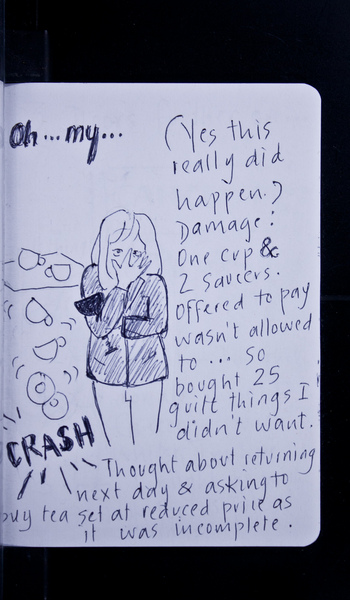 Oh... my...
(Yes this
really did
happen.)
Damage:
One cup &
2 saucers.
Offered to pay
wasn't allowed
to ... so
bought 25
guilt things I
didn't want.
CRASH
Thought about returning
next day & asking to
buy tea set at reduced price as
it was incomplete.